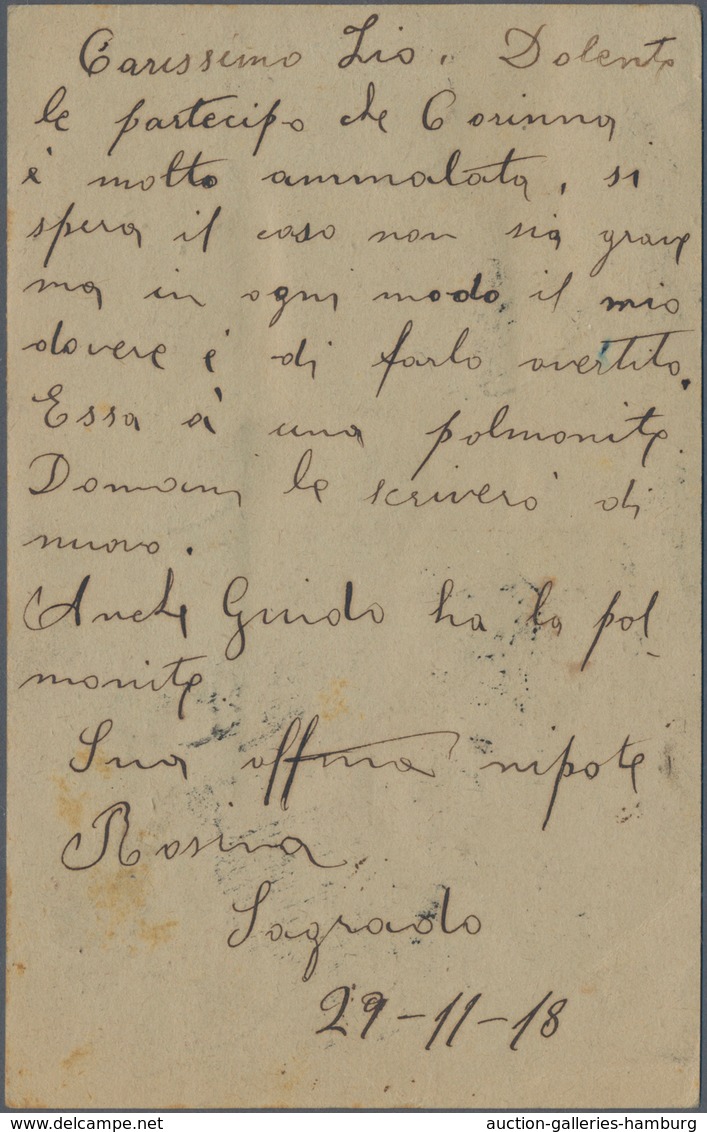 Carissimo Zio. Dolente
le partecipo che Corinna
è molto ammalata, si
spera il caso non sia grave
ma in ogni modo il mio
dovere è di farlo avertito.
Essa à una polmonite.
Domani le scriverò di
nuovo.
Anche Guido ha la pol-
monite
Sua affma nipote
Rosina
Sagrado
29-11-18
auction-galleries-hamburg